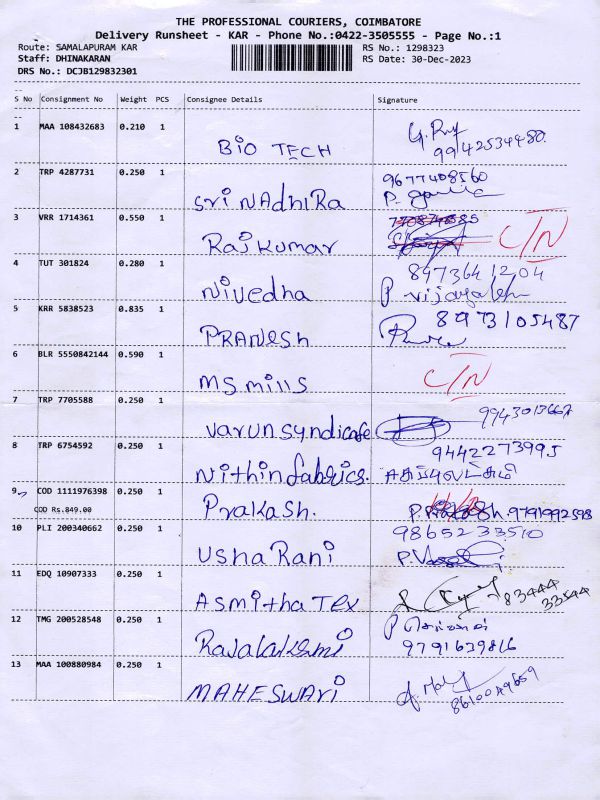 THE PROFESSIONAL COURIERS, COIMBATORE
Delivery Runsheet - KAR - Phone No.:0422-3505555 - Page No.:1
Route: SAMALAPURAM KAR RS No.: 1298323
Staff: DHINAKARAN RS Date: 30-Dec-2023
DRS No.: DCJB129832301
S No Consignment No Weight PCS Consignee Details Signature
1 MAA 108432683 0.210 1
BIO TECH 9942534480
2 TRP 4287731 0.250 1 9677408560
Sri NAdhiRa P.
3 VRR 1714361 0.550 1
RajKumar C/N
4 TUT 301824 0.280 1 8973641204
Nivedha P vijayalakshmi
5 KRR 5838523 0.835 1 8973105487
PRANesh
6 BLR 5550842144 0.590 1
MS mills C/N
7 TRP 7705588 0.250 1
Varun Syndicate
8 TRP 6754592 0.250 1 9442273995
Nithin fabrics.
9 COD 1111976398 0.250 1
COD Rs.849.00 Prakash. 9791992598
10 PLI 200340662 0.250 1 9865233510
Usha Rani
11 EDQ 10907333 0.250 1
Asmitha Tex 83444 33544
12 TMG 200528548 0.250 1
Rajalakshmi 9791639816
13 MAA 100880984 0.250 1
MAHESWARi 8610049659